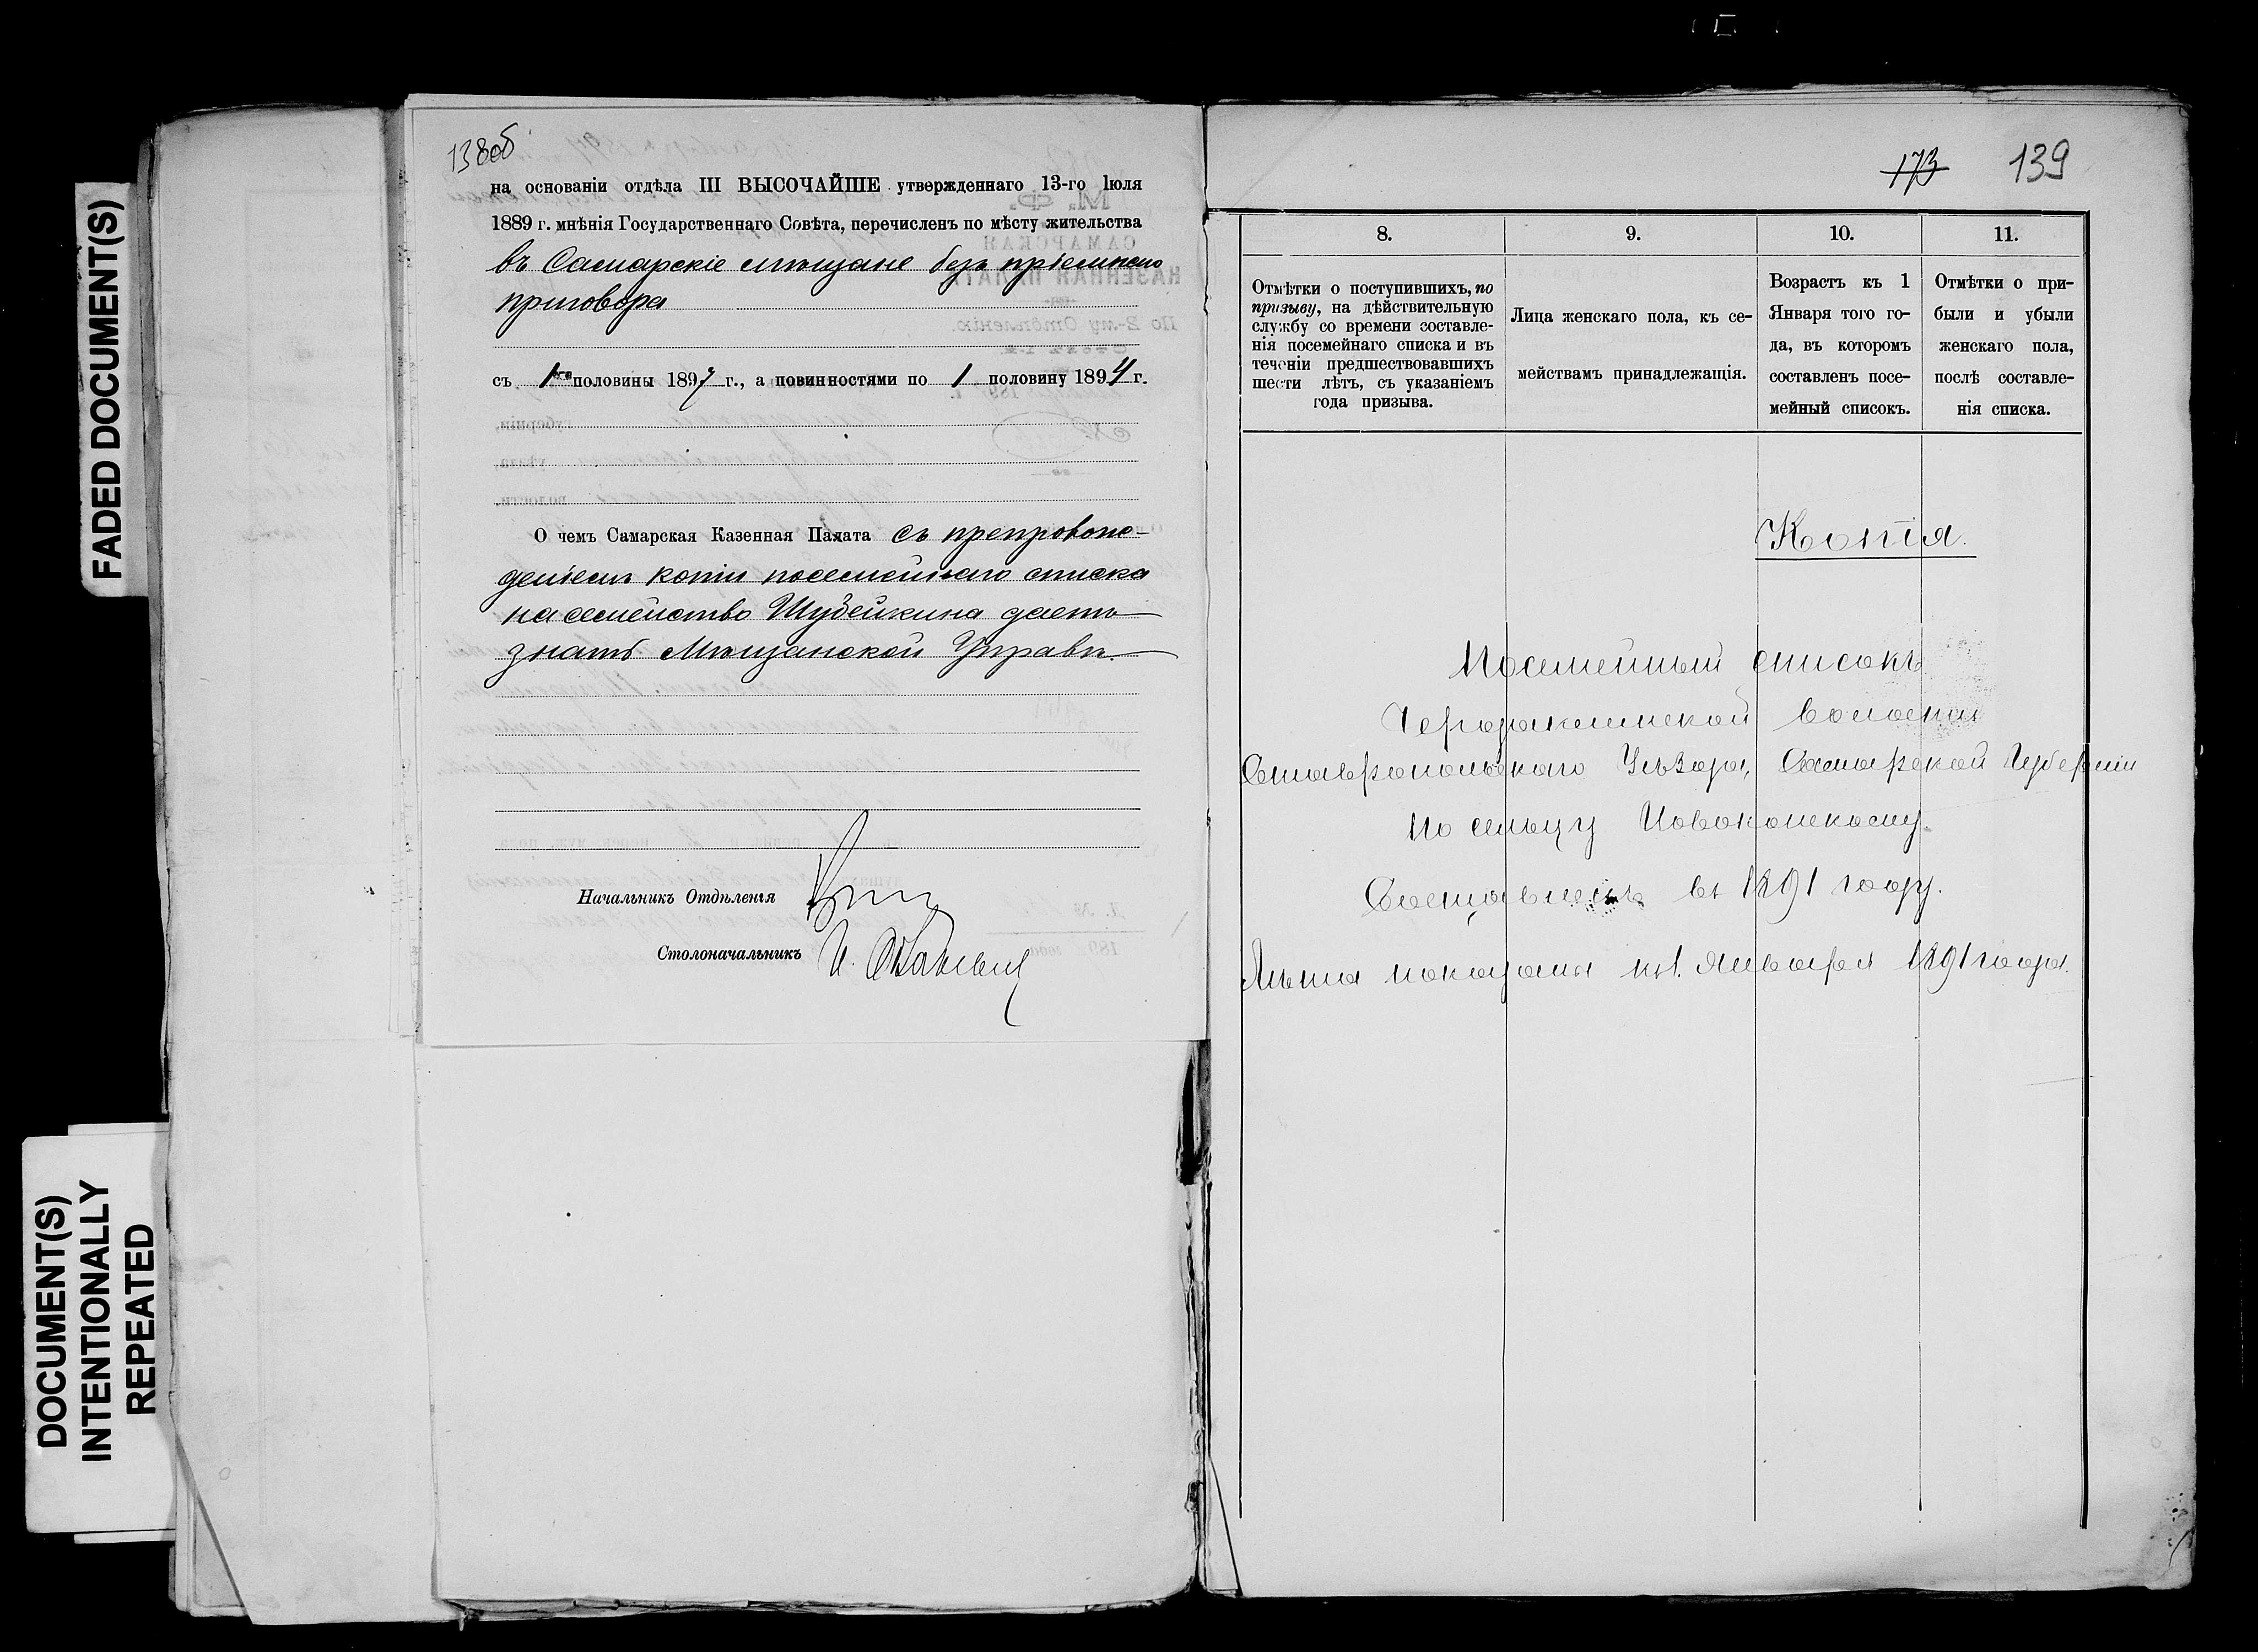 FADED DOCUMENT(S)
DOCUMENT(S)
INTENTIONALLY
REPEATED
138об
на основаніи отдѣла III ВЫСОЧАЙШЕ утвержденнаго 13-го Іюля
1889 г. мнѣнія Государственнаго Совѣта, перечисленъ по мѣсту жительства
въ Самарскіе мѣщане безъ пріемнаго
приговора
съ 1ой половины 1897 г., а повинностями по 1 половину 1894 г.
О чемъ Самарская Казенная Палата съ препровож-
деніемъ копіи посемейнаго списка
на семейство Шубейкина даетъ
знать Мѣщанской Управѣ.
Начальникъ Отдѣленія
Столоначальникъ И.
173 139
8.
9.
10.
11.
Отмѣтки о поступившихъ, по
призыву, на дѣйствительную
службу со времени составле-
нія посемейнаго списка и въ
теченіи предшествовавшихъ
шести лѣтъ, съ указаніемъ
года призыва.
Лица женскаго пола, къ се-
мействамъ принадлежащія.
Возрастъ къ 1
Января того го-
да, въ которомъ
составленъ посе-
мейный списокъ.
Отмѣтки о при-
были и убыли
женскаго пола,
послѣ составле-
нія списка.
Копія.
Посемейный списокъ
волости
Ставропольскаго Уѣзда, Самарской Губерніи
По сельцу
Составленъ въ 1891 году.
Лѣта показаны къ 1. Января 1891 года.